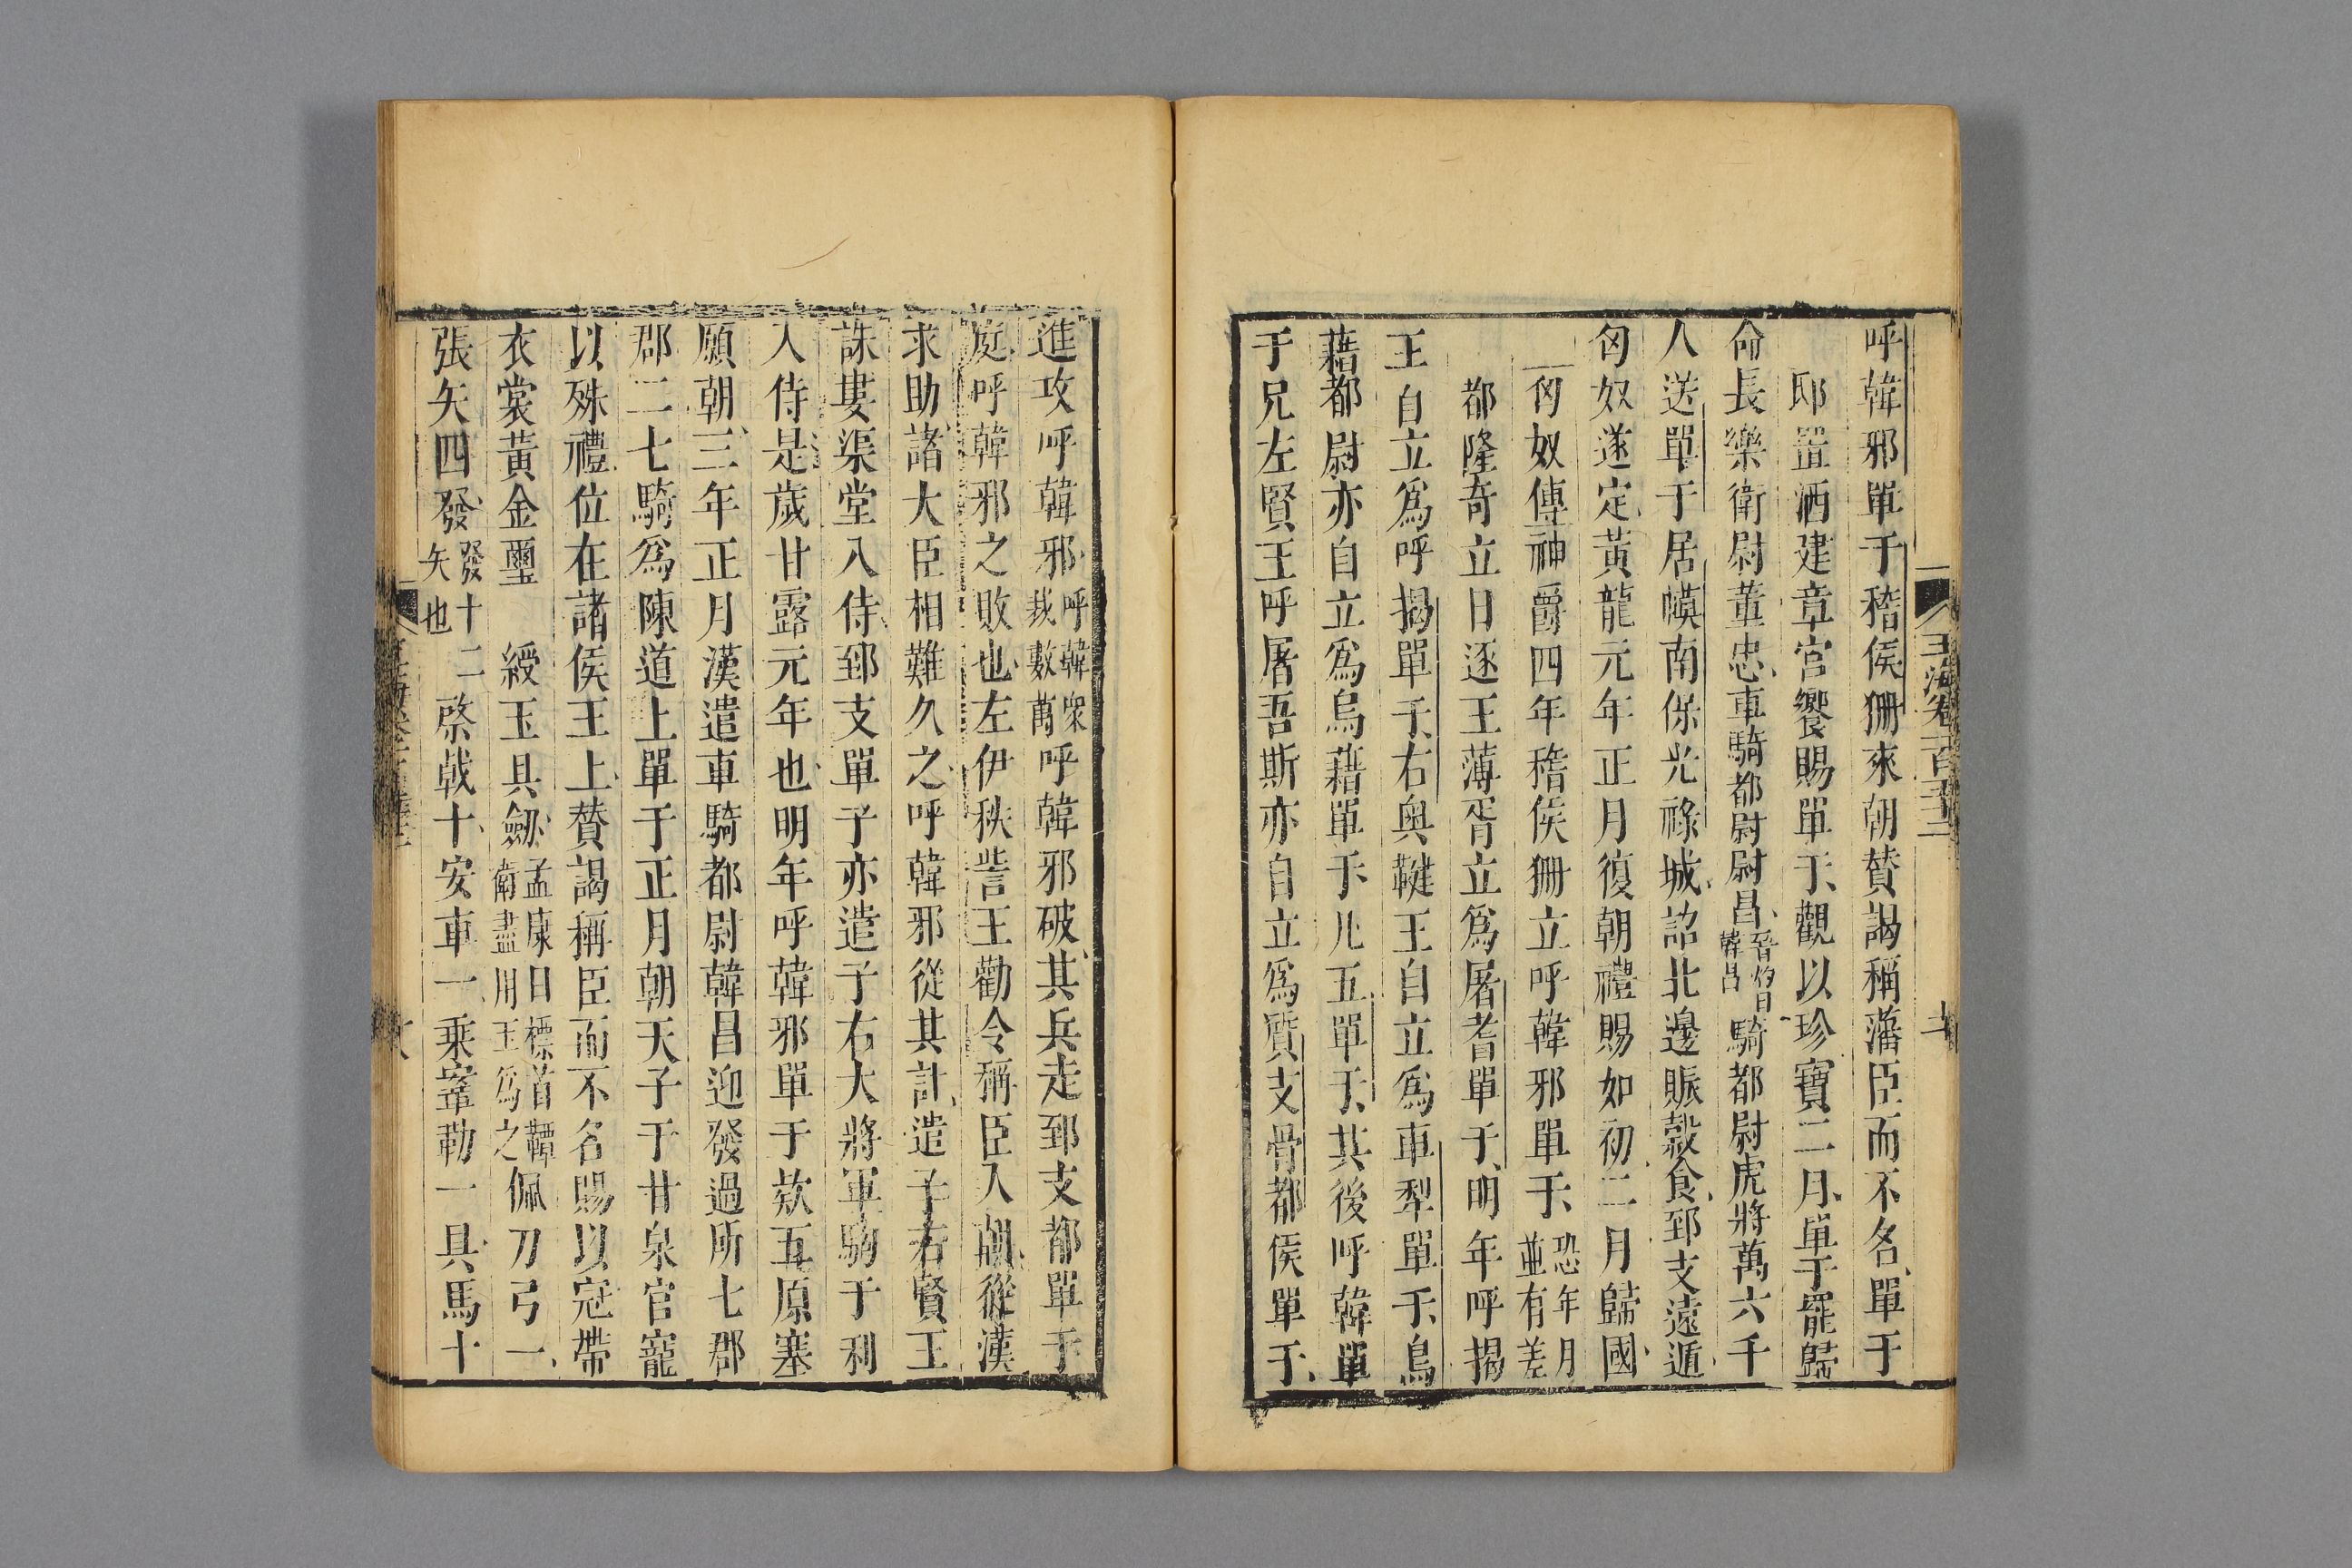 玉海卷一百五十二
呼韓邪單于稽侯狦來朝贊謁稱藩臣而不名單于
邸置酒建章宮饗賜單于觀以珍寶二月單于罷歸
命長樂衛尉董忠車騎都尉尉昌晉灼曰韓昌騎都尉虎將萬六千
人送單于居幙南保光祿城詔北邊賑穀食郅支遠遁
匈奴遂定黃龍元年正月復朝禮賜如初二月歸國
匈奴傳神爵四年稽侯狦立呼韓邪單于恐年月並有差
都隆奇立日逐王薄胥立爲屠耆單于明年呼揭
王自立爲呼揭單于右奥鞬王自立爲車犁單于烏
藉都尉亦自立爲烏藉單于凡五單于其後呼韓單
于兄左賢王呼屠吾斯亦自立爲質支骨都侯單于
進攻呼韓邪呼韓衆裁數萬呼韓邪破其兵走郅支都單于
庭呼韓邪之敗也左伊秩訾王勸令稱臣入朝從漢
求助諸大臣相難久之呼韓邪從其計遣子右賢王
誅婁渠堂入侍郅支單于亦遣子右大將軍駒于利
入侍是歲甘露元年也明年呼韓邪單于欵五原塞
願朝三年正月漢遣車騎都尉韓昌迎發過所七郡
郡二七騎爲陳道上單于正月朝天子于甘泉宮寵
以殊禮位在諸侯王上贊謁稱臣而不名賜以冠帶
衣裳黃金璽 綬玉具劒孟康曰標首鐔衛盡用玉爲之佩刀弓一
張矢四發發十二矢也棨戟十安車一乘鞌勒一具馬十